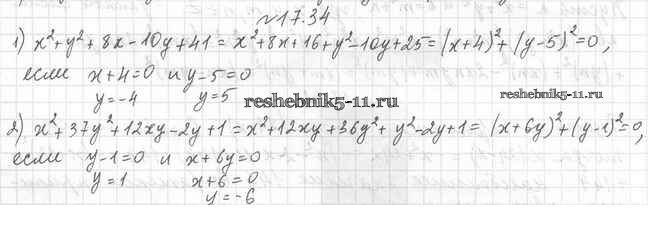 №17.34
1) x²+y²+8x-10y+41 = x²+8x+16+y²-10y+25=(x+4)²+(y-5)²=0,
если x+4=0 и y-5=0
y=-4 y=5
reshebnik5-11.ru
reshebnik5-11.ru
2) x²+37y²+12xy-2y+1 = x²+12xy+36y²+y²-2y+1= (x+6y)²+(y-1)²=0,
если y-1=0 и x+6y=0
y=1 x+6=0
y=-6